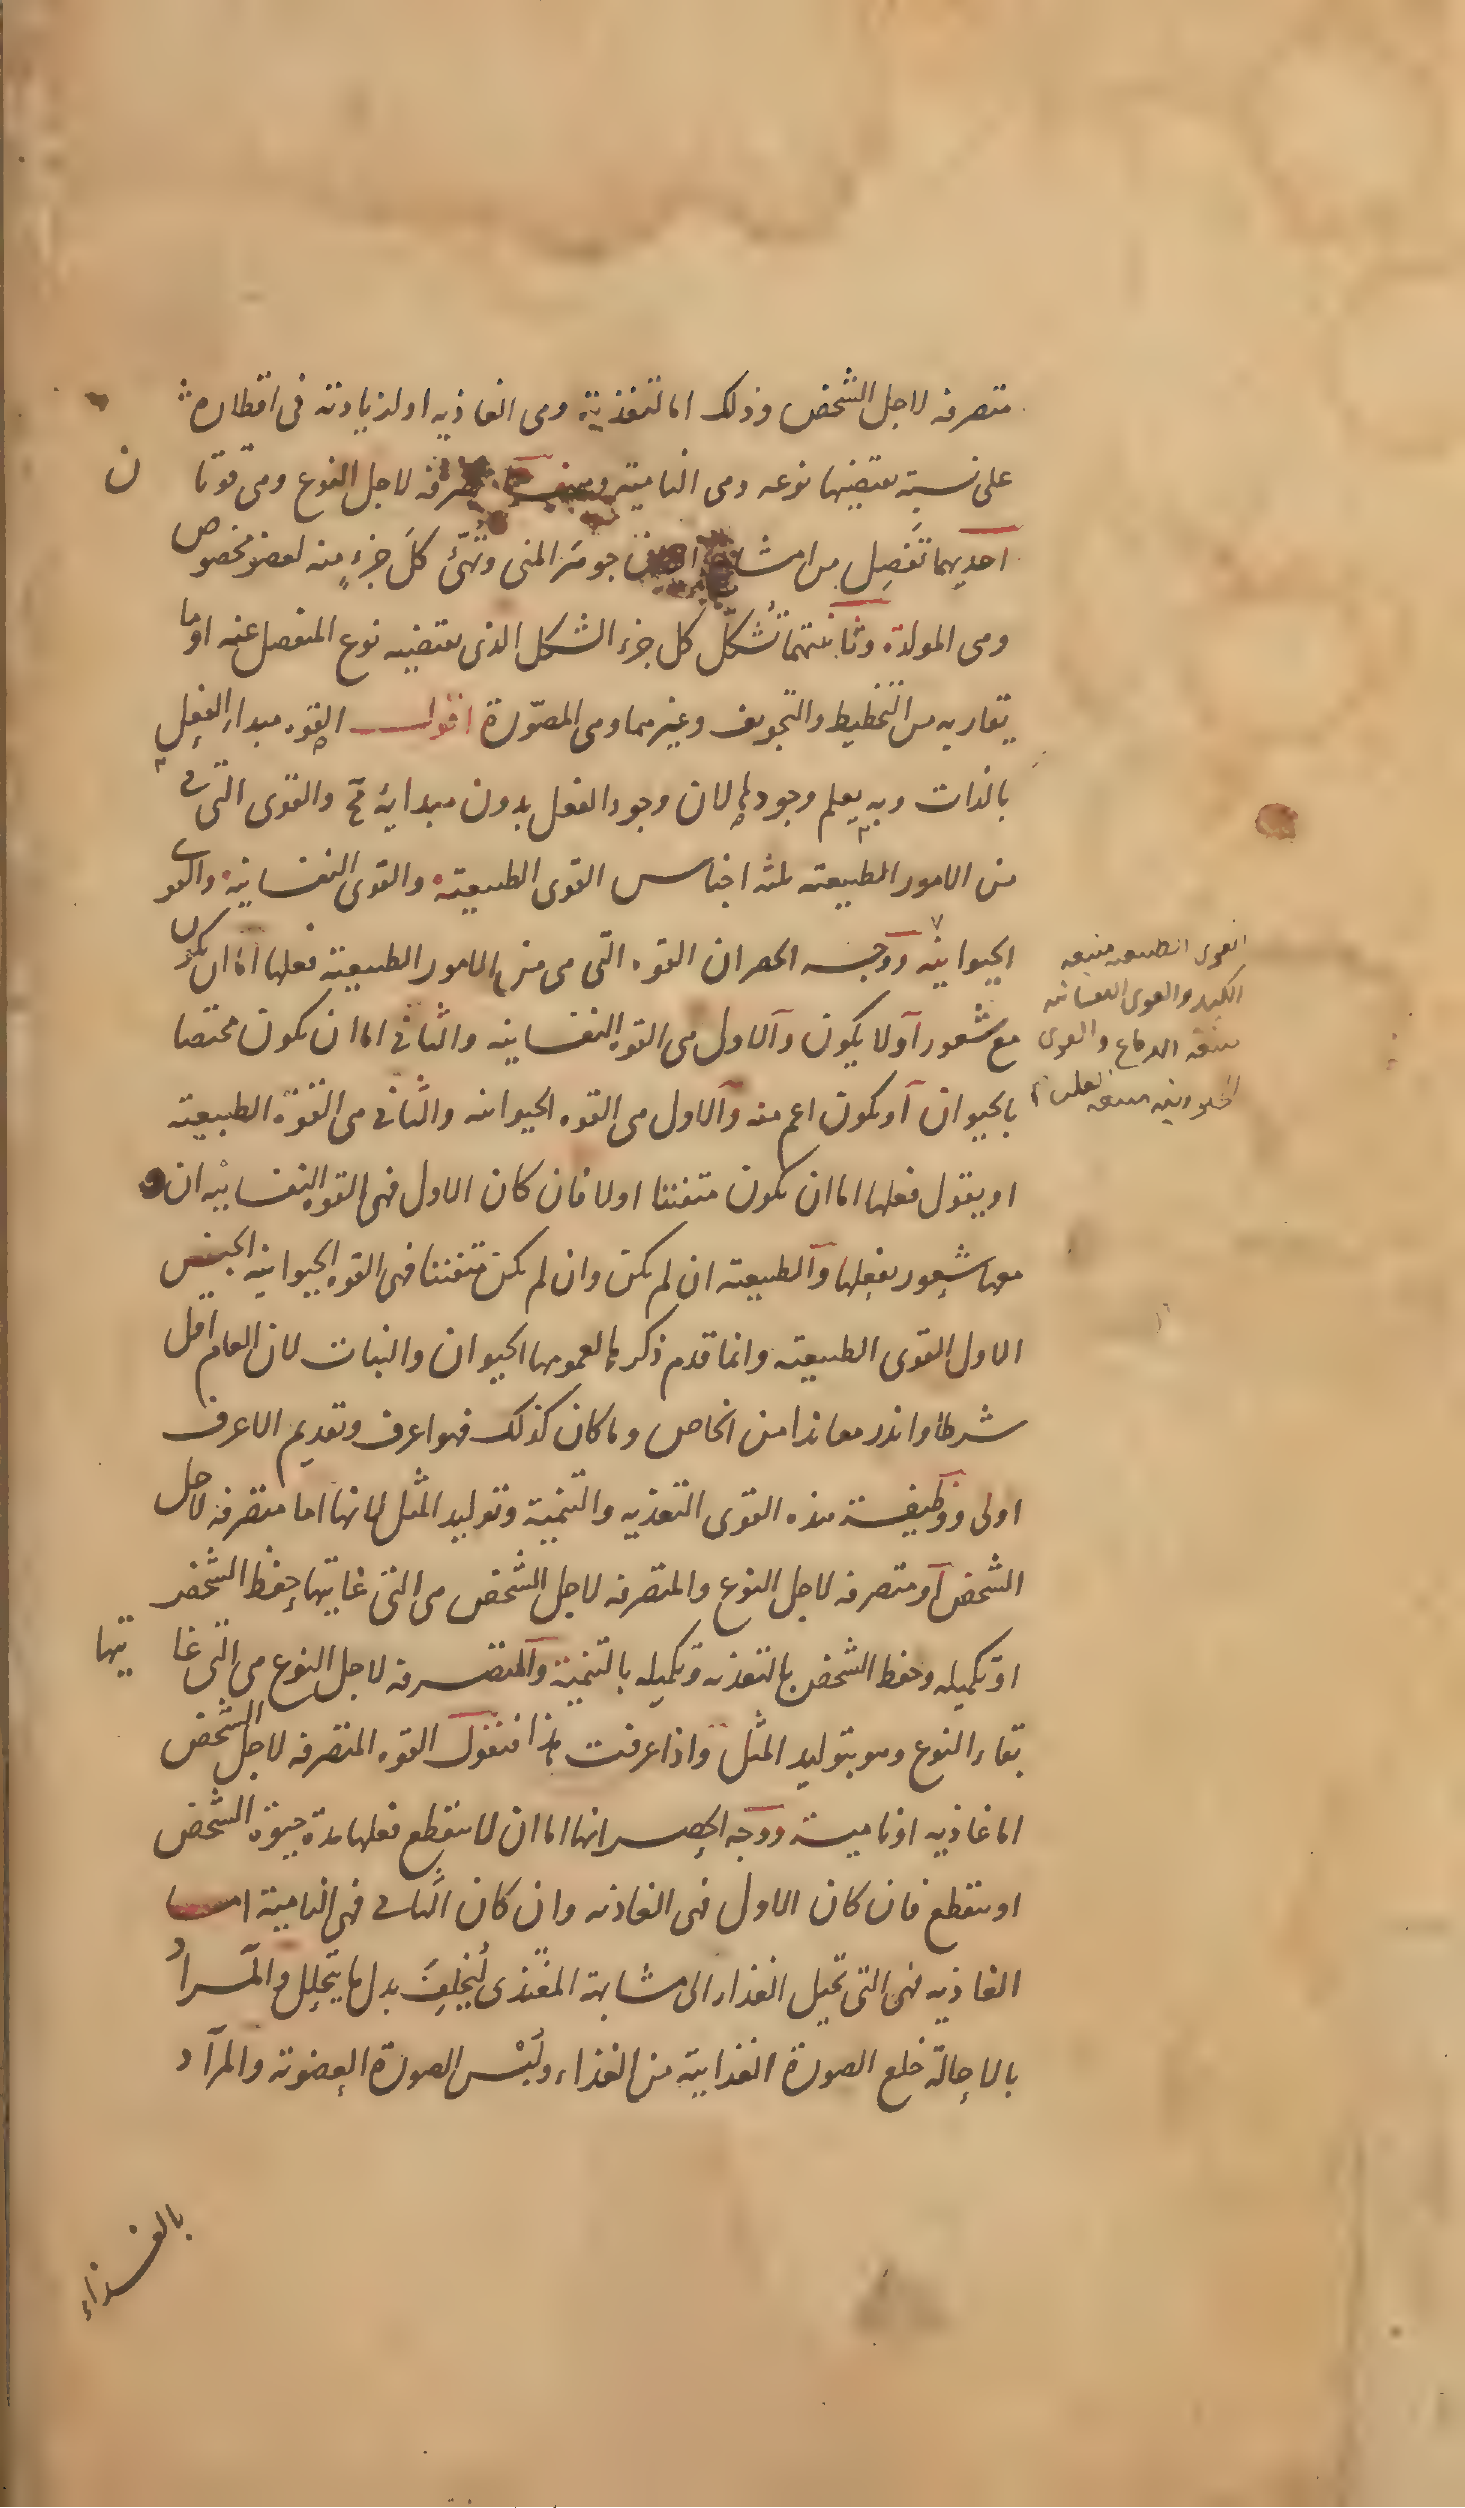 متصرفه لاجل الشخص وذلك اما لتغذيته وهى الغاذيه او لزيادته فى اقطاره
على نسبته يقتضيها نوعه وهى الناميه متصرفة لاجل النوع وهى قوتان
احديهما تفصل من امشاج جوهر المنى وتُهيّئ كلّ جزءٍ منه لعضو مخصوص
وهى المولدة وثانيتهما تُشكّل كل جزء الشكل الذى يقتضيه نوع المنفصل عنه او ما
يقاربه من التخطيط والتجويف وغيرهما وهى المصوّرة اقول القوه مبداء الفعل
بالذات وبه يعلم وجودها لان وجود الفعل بدون مبدائه مح والقوى التى هى
من الامور الطبيعته ثلثه اجناس القوى الطبيعته والقوى النفسانية والقوى
الحيوانيه ووجه الحصر ان القوه التى هى من الامور الطبيعية فعلها اما ان يكون
مع شعور اولا يكون والاول هى القوه النفسانيه والثانى اما ان يكون مختصا
بالحيوان او يكون اعم منه والاول هى القوه الحيوانيه والثانى هى القوة الطبيعته
او يقول فعلها اما ان يكون متفننا اولا فان كان الاول فهى القوه النفسانيه ان
معها شعور بفعلها والطبيعته ان لم يكن وان لم يكن متفننا فهى القوه الحيوانيه الجنس
الاول القوى الطبيعته وانما قدم ذكرها لعمومها الحيوان والنبات لان العام اقل
شرطا واندر معاندا من الخاص وما كان كذلك فهو اعرف وتقديم الاعرف
اولى ووظيفة هذه القوى التغذيه والتنمية وتوليد المثل لانها اما متصرفه لاجل
الشخص او متصرفه لاجل النوع والمتصرفه لاجل الشخص هى التى غايتها حفظ الشخص
او تكميله وحفظ الشخص بالتغذيه وتكميله بالتنمية والمتصرفه لاجل النوع هى التى غايتها
بقاء النوع وهو بتوليد المثل واذا عرفت هذا فنقول القوه المتصرفه لاجل الشخص
اما غاذيه او ناميه ووجه الحصر انها اما ان لا ينقطع فعلها مدة حيوة الشخص
او ينقطع فان كان الاول فهى الغاذيه وان كان الثانى فهى الناميه اما
الغاذيه فهى التى تحيل الغذاء الى مشابهة المغتذى ليُخلِفَ بدل ما يتحلل والمراد
بالاحالة خلع الصورة الغذائية من الغذاء ولُبْس الصورة العضويه والمراد
بالغذاء
القوى الطبيعيه منبعه
الكبد والقوى النفسانيه
منبعه الدماغ والقوى
الحيوانيه منبعه القلب